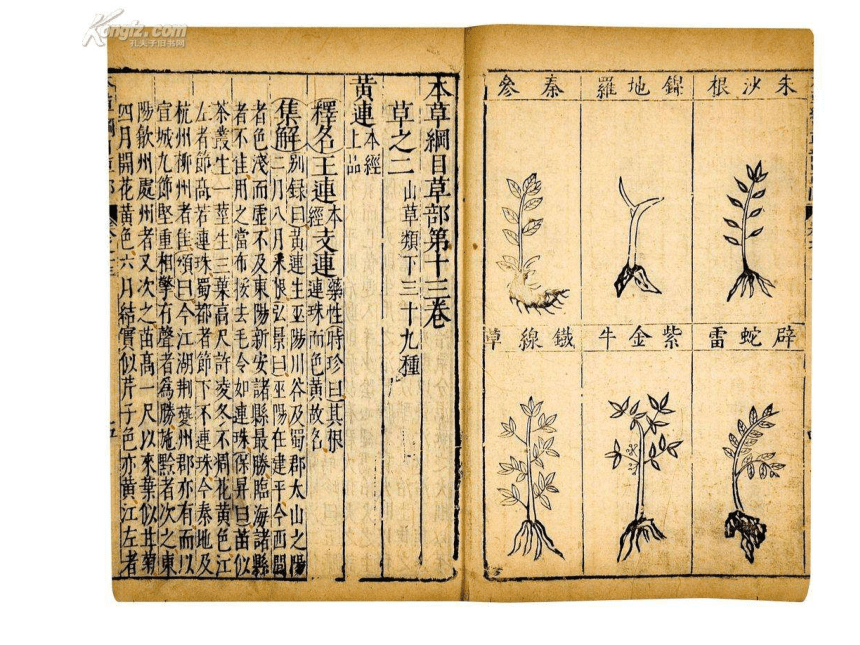 Kongfz.com
孔夫子旧书网
朱沙根
錦地羅
拳參
辟蛇雷
紫金牛
鐵線草
本草綱目草部第十三卷
草之二 山草類下三十九種
黄連 本經上品
釋名 王連 本經 支連 藥性 時珍曰其根連珠而色黄故名
集解 别録曰黄連生巫陽川谷及蜀郡太山之陽二月八月采根弘景曰巫陽在建平今西間
者色淺而虛不及東陽新安諸縣最勝臨海諸縣
者不佳用之當布挼去毛令如連珠保昇曰苗似
茶叢生一莖生三葉高尺許凌冬不凋花黄色江
左者節高若連珠蜀都者節下不連珠今秦地及
杭州柳州者佳頌曰今江湖荆夔州郡亦有而以
宣城九節堅重相擊有聲者爲勝施黔者次之東
陽歙州處州者又次之苗高一尺以來葉似甘菊
四月開花黄色六月結實似芹子色亦黄江左者